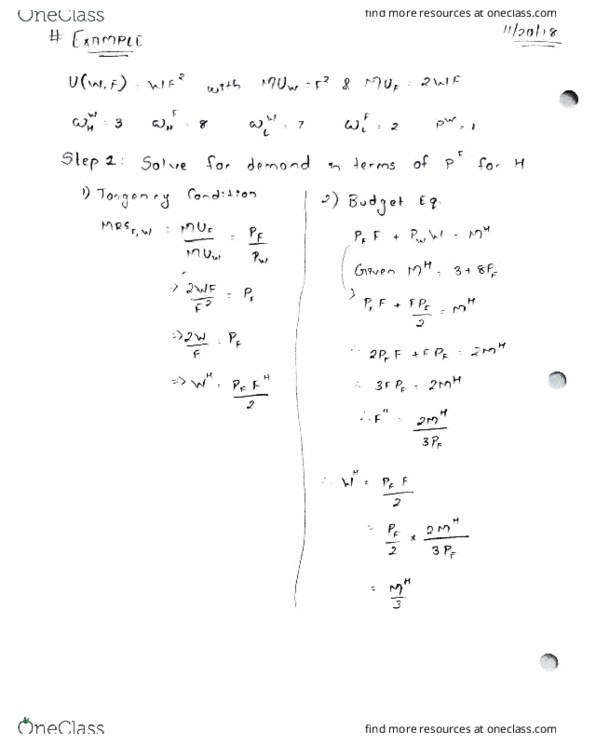 OneClass
find more resources at oneclass.com
# EXAMPLE
11/20/18
U(W,F) = WF² with MUw = F² & MUF = 2WF
ωHW = 3 ωHF = 8 ωLW = 7 ωLF = 2 PW = 1
Step 1: Solve for demand in terms of PF for H
1) Tangency Condition
MRSF,W = MUF/MUW = PF/PW
=> 2WF/F² = PF
=> 2W/F = PF
=> WH = PF FH/2
2) Budget Eq.
PF F + PW W = MH
Given MH = 3 + 8PF
PF F + FPF/2 = MH
∴ 2PF F + FPF = 2MH
∴ 3FPF = 2MH
∴ FH = 2MH/3PF
∴ WH = PF F/2
= PF/2 × 2MH/3PF
= MH/3
OneClass
find more resources at oneclass.com